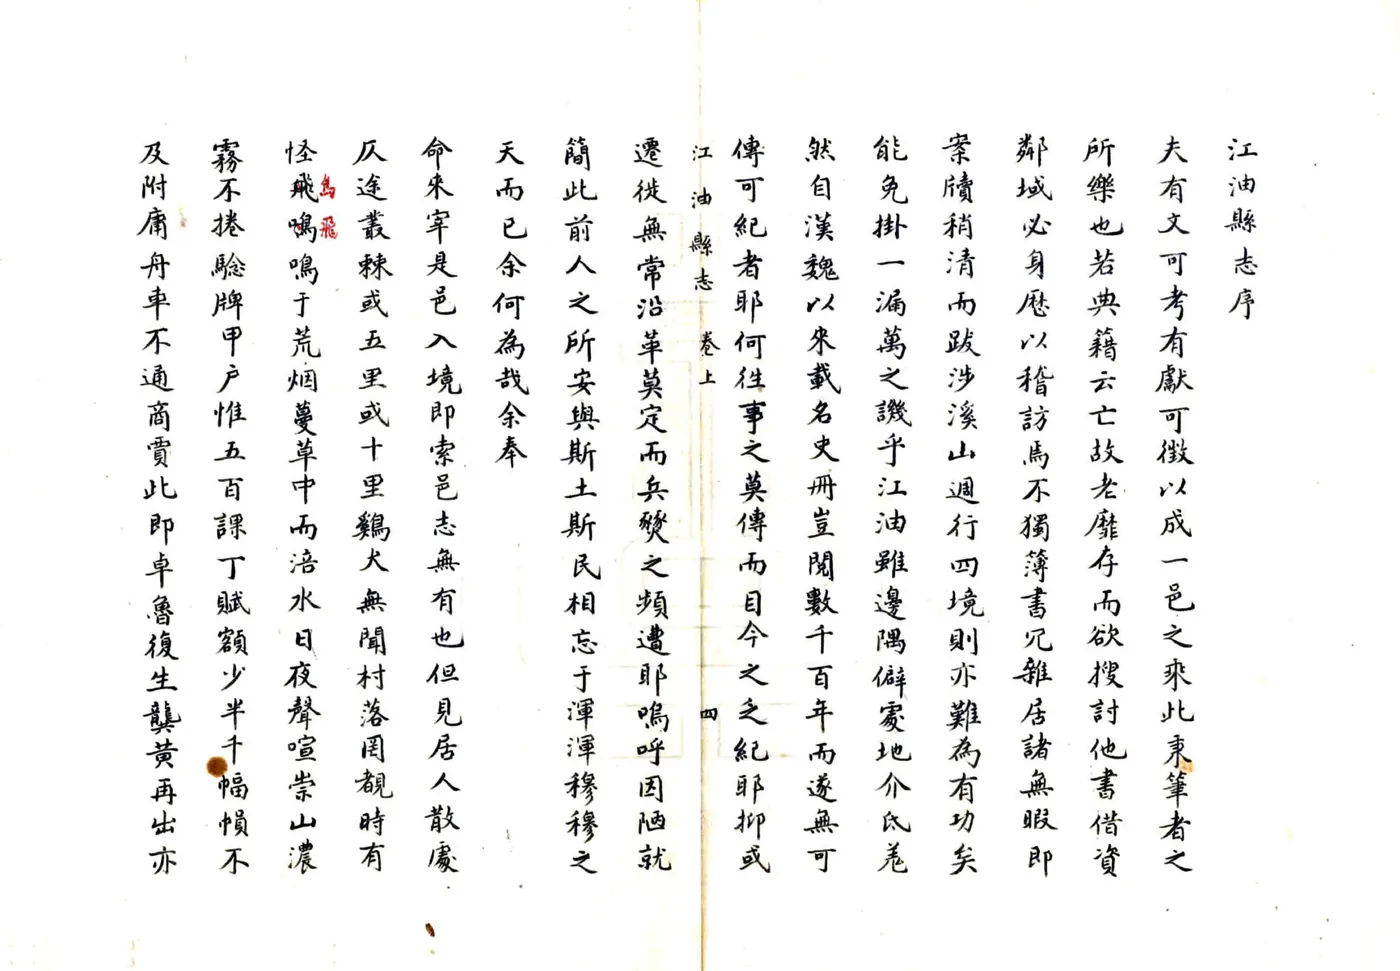 江油縣志序
夫有文可考有獻可徵以成一邑之乘此秉筆者之
所樂也若典籍云亡故老靡存而欲搜討他書借資
鄰域必身歷以稽訪焉不獨簿書冗雜居諸無暇即
案牘稍清而跋涉溪山週行四境則亦難為有功矣
能免掛一漏萬之譏乎江油雖邊隅僻處地介氐羌
然自漢魏以來載名史冊豈閱數千百年而遂無可
傳可紀者耶何徃事之莫傳而目今之乏紀耶抑或
江油縣志 卷上 四
遷徙無常沿革莫定而兵燹之頻遭耶嗚呼因陋就
簡此前人之所安與斯土斯民相忘于渾渾穆穆之
天而已余何為哉余奉
命來宰是邑入境即索邑志無有也但見居人散處
仄途叢棘或五里或十里鷄犬無聞村落罔覩時有
怪飛鳴鳴于荒烟蔓草中而涪水日夜聲喧崇山濃
鳥飛
霧不捲騐牌甲户惟五百課丁賦額少半千幅幀不
及附庸舟車不通商賈此即卓魯復生龔黃再出亦